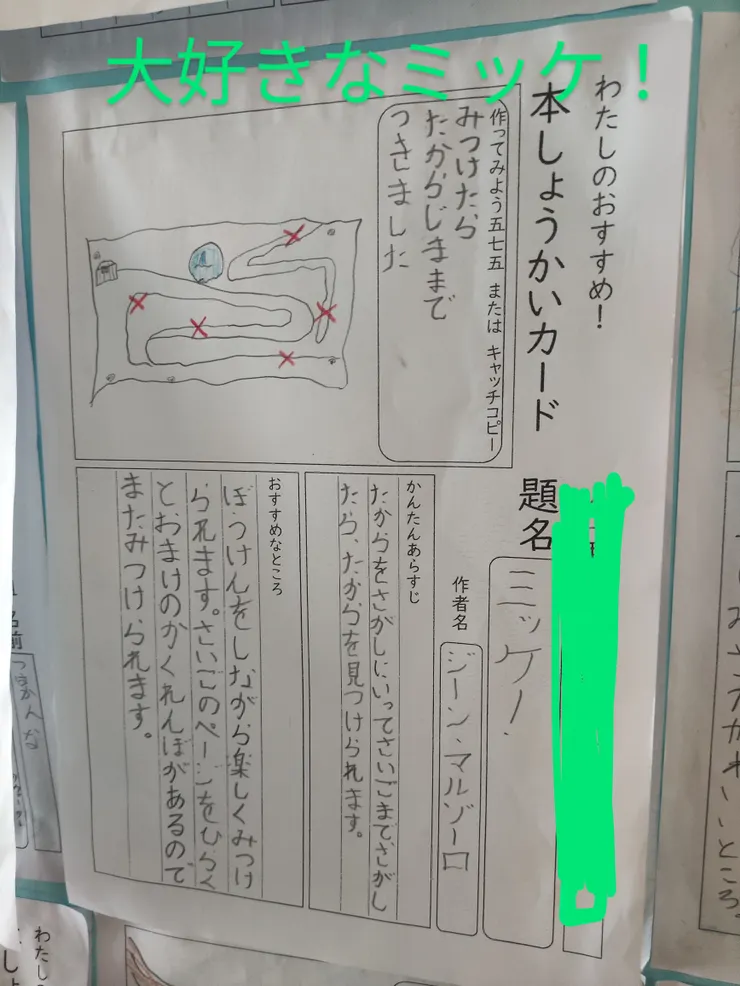 大好きなミッケ！
わたしのおすすめ！
本しょうかいカード
題名
ミッケ！
作者名
ジーン、マルゾーロ
作ってみよう五七五 または キャッチコピー
みつけたら
たからじままで
つきました
かんたんあらすじ
たからをさがしにいってさいごまでさがし
たら、たからを見つけられます。
おすすめなところ
ぼうけんをしながら楽しくみつけ
られます。さいごのページをひらく
とおまけのかくれんぼがあるので
またみつけられます。
名前
わたしの